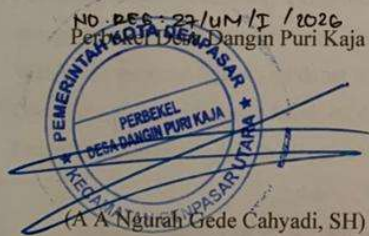 NO REG : 27/UM/I /2026
Perbekel Desa Dangin Puri Kaja
PEMERINTAH KOTA DENPASAR
PERBEKEL
DESA DANGIN PURI KAJA
KECAMATAN DENPASAR UTARA
(A A Ngurah Gede Cahyadi, SH)